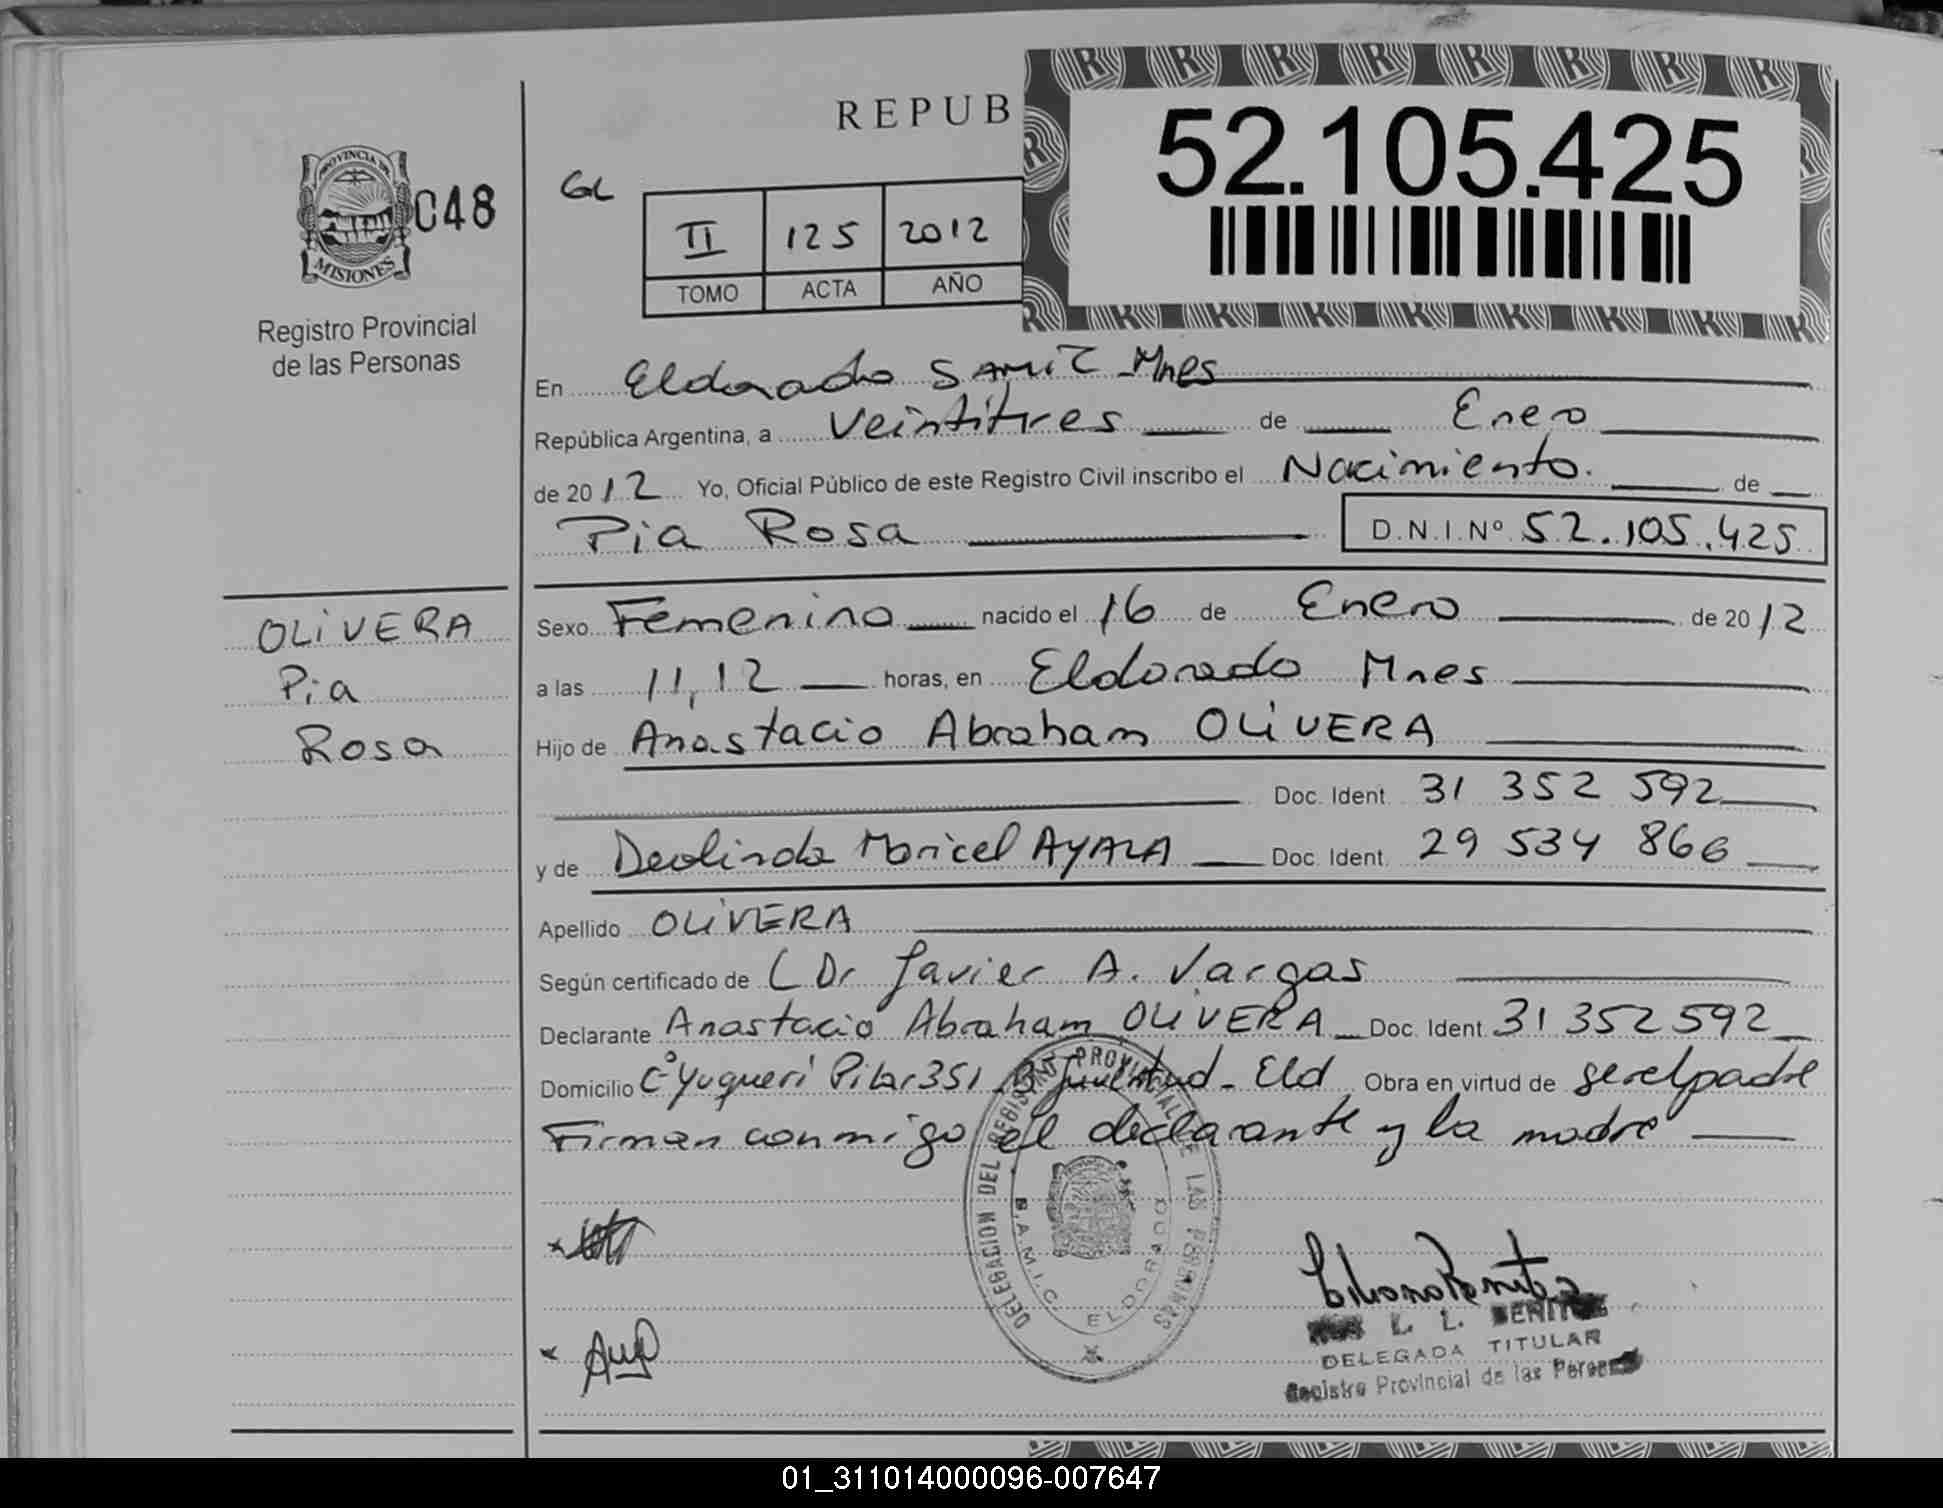 REPUB
52.105.425
PROVINCIA DE
MISIONES
048
GL
II 125 2012
TOMO ACTA AÑO
Registro Provincial
de las Personas
En Eldorado SAMIC Mnes
República Argentina, a Veintitres de Enero
de 2012 Yo, Oficial Público de este Registro Civil inscribo el Nacimiento. de
Pia Rosa D.N.I.Nº 52.105.425
OLIVERA
Pia
Rosa
Sexo Femenino nacido el 16 de Enero de 2012
a las 11,12 horas, en Eldorado Mnes
Hijo de Anastacio Abraham OLIVERA
Doc. Ident. 31 352 592
y de Deolinda Maricel AYALA Doc. Ident. 29 534 866
Apellido OLIVERA
Según certificado de Dr Javier A. Vargas
Declarante Anastacio Abraham OLIVERA Doc. Ident. 31 352 592
Domicilio Cº Yuqueri Pilar 351 Bº Juventud - Eld Obra en virtud de ser el padre
Firman conmigo el declarante y la madre
DELEGACION DEL REGISTRO PROVINCIAL DE LAS PERSONAS
S.A.M.I.C. ELDORADO
L. L. BENITEZ
DELEGADA TITULAR
Registro Provincial de las Personas
01_311014000096-007647